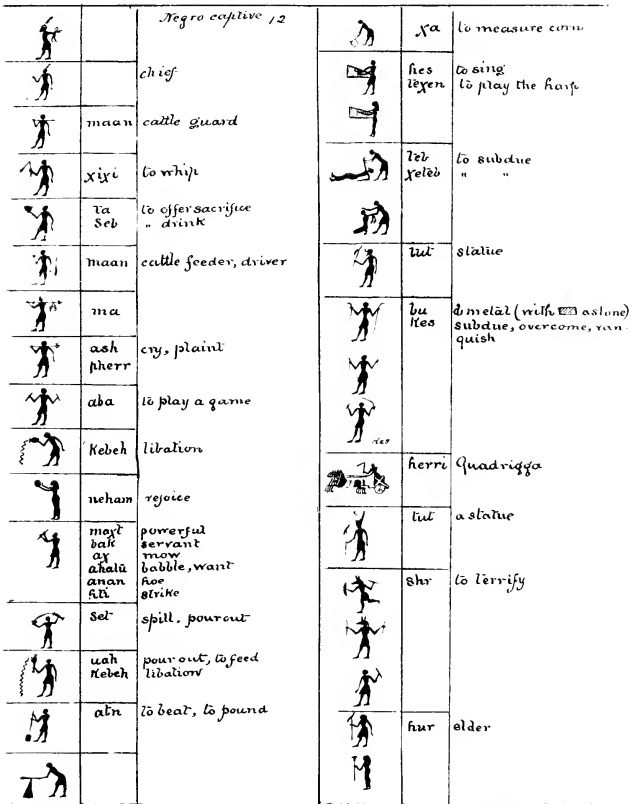 Negro captive 12
chief
maan cattle guard
xixi to whip
ta to offer sacrifice
Seb " drink
maan cattle feeder, driver
ma
ash cry, plaint
pherr
aba to play a game
Kebeh libation
neham rejoice
maxt powerful
bak servant
ax mow
ahalu babble, want
anan hoe
hti strike
Set spill. pour out
uah pour out, to feed
Kebeh libation
atn to beat, to pound
xa to measure corn
hes to sing
texen to play the harp
teb to subdue
xeteb " "
tut statue
bu metal (with a stone)
Kes subdue, overcome, van-
quish
Kes
herri Quadrigga
tut a statue
shr to terrify
hur elder